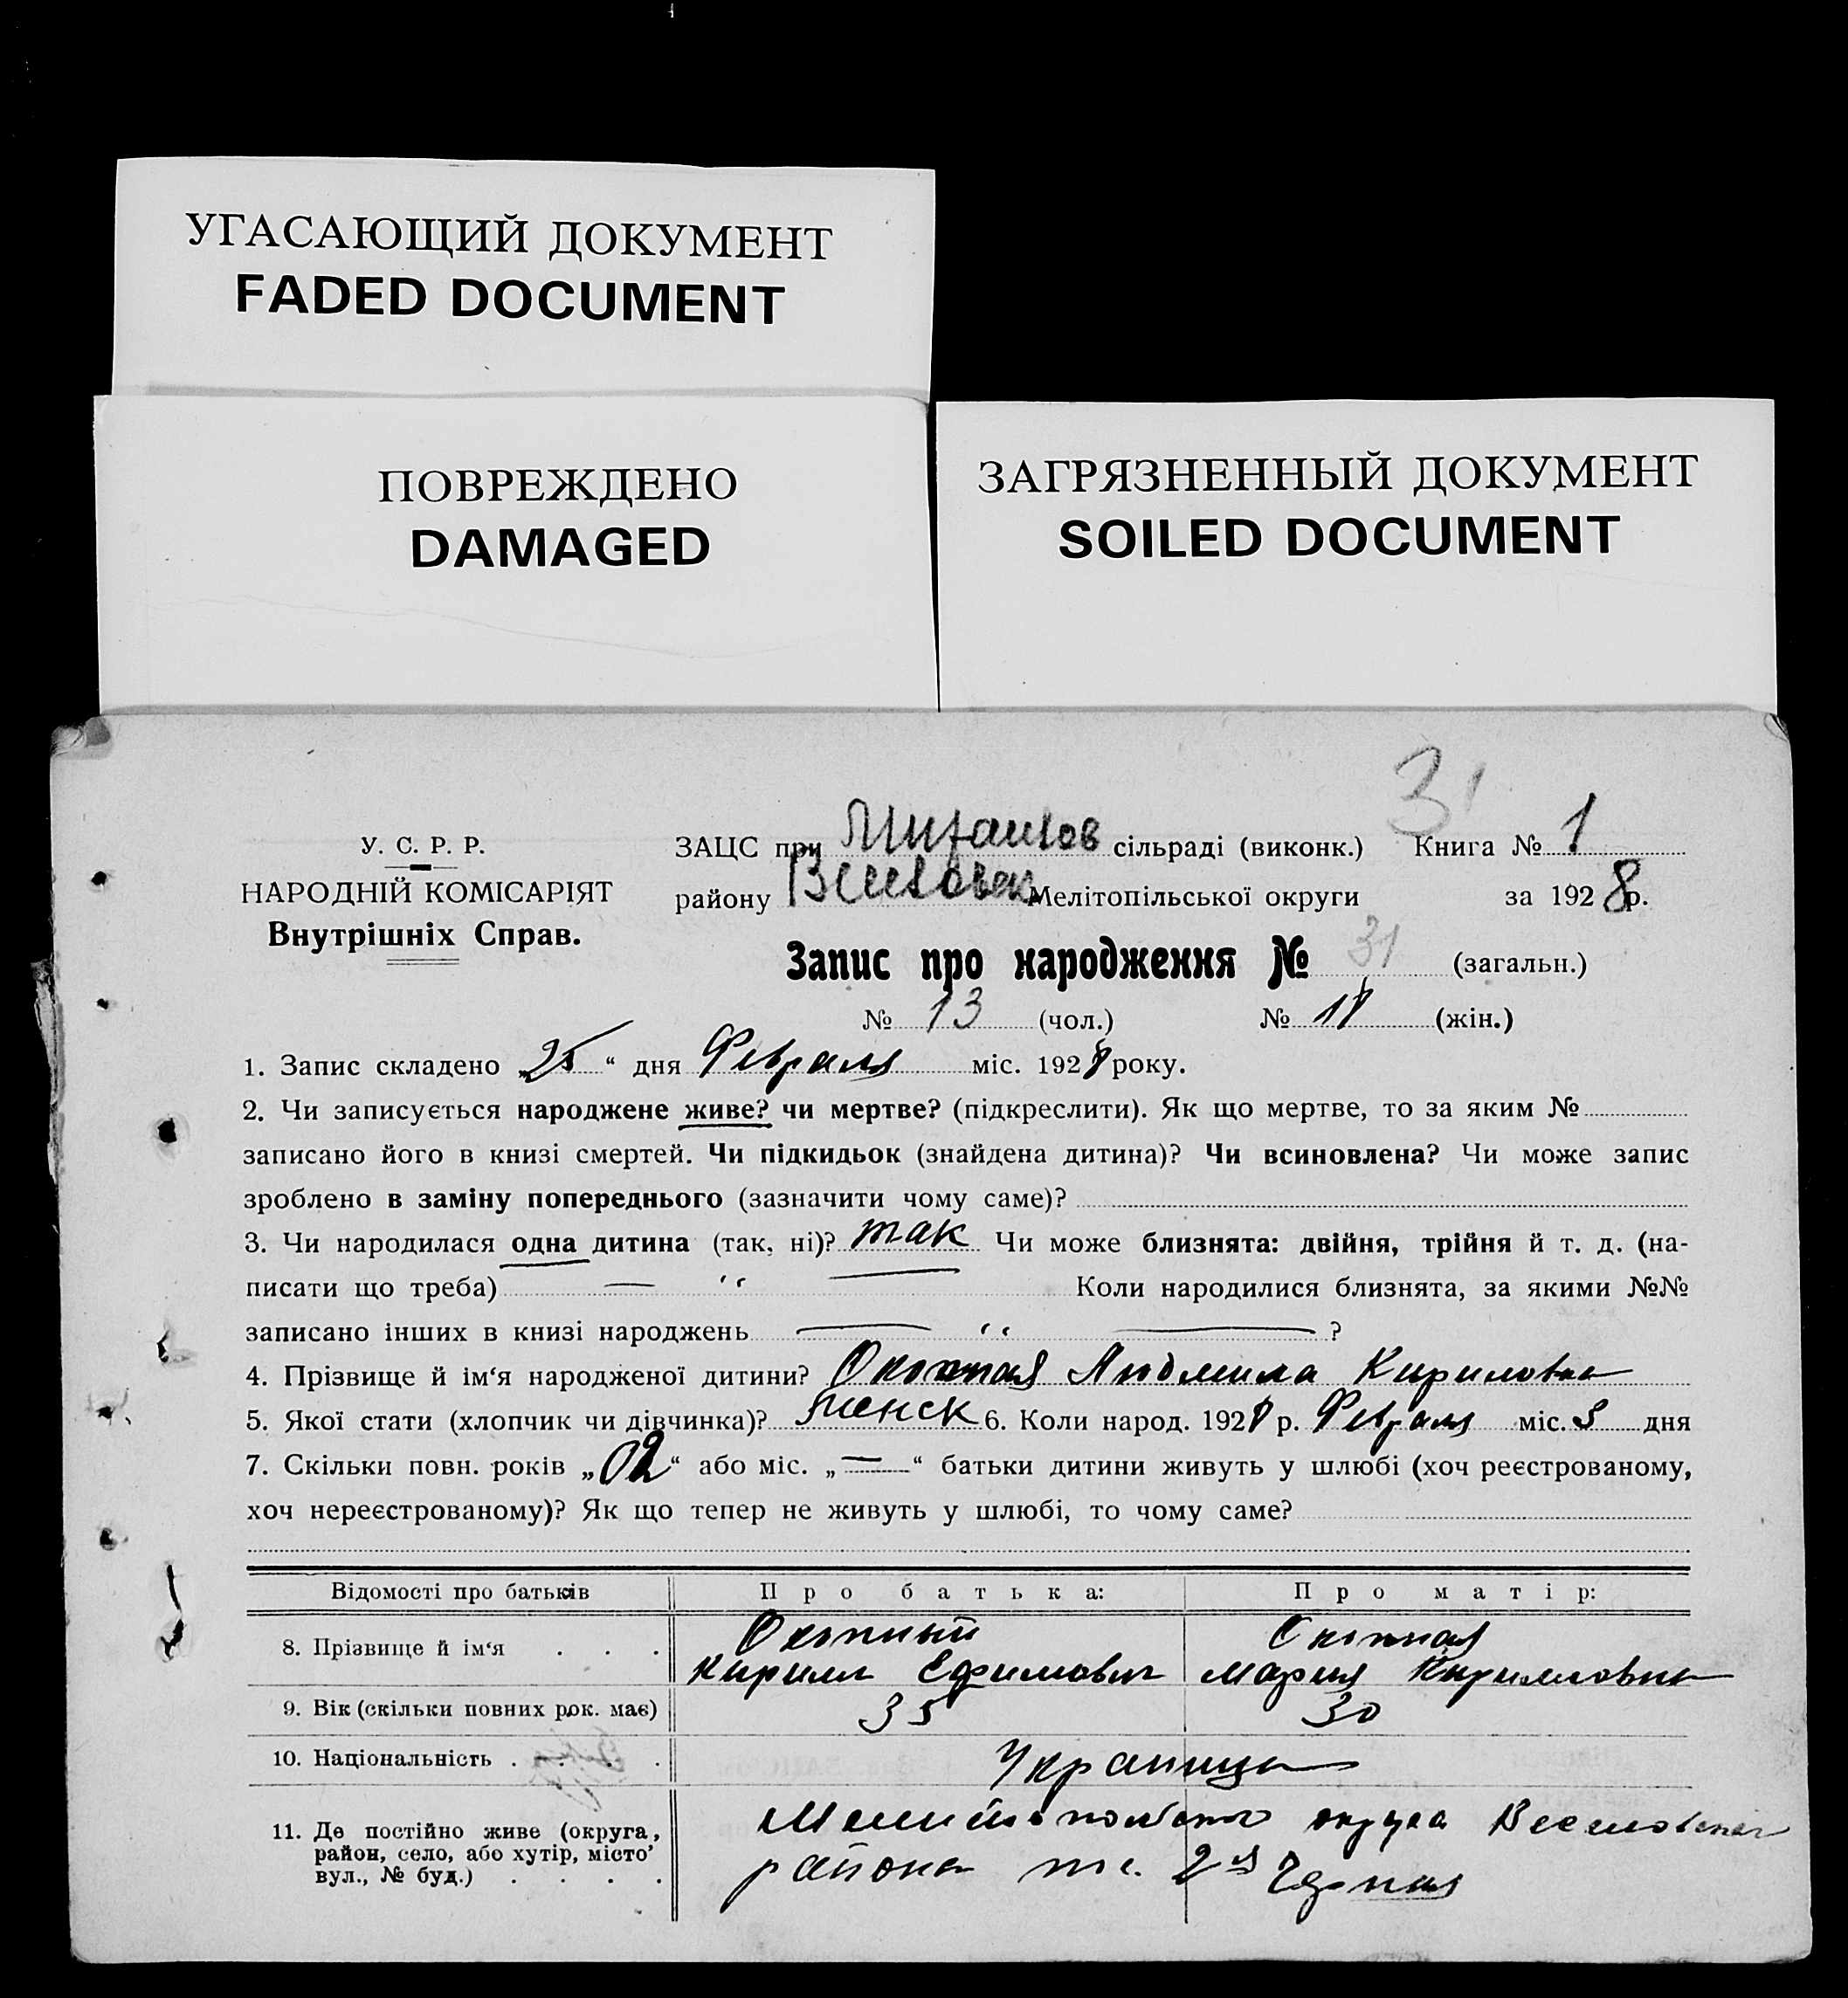 УГАСАЮЩИЙ ДОКУМЕНТ
FADED DOCUMENT
ПОВРЕЖДЕНО
DAMAGED
ЗАГРЯЗНЕННЫЙ ДОКУМЕНТ
SOILED DOCUMENT
31
У. С. Р. Р.
НАРОДНІЙ КОМІСАРІЯТ
Внутрішніх Справ.
ЗАЦС при сільраді (виконк.) Книга № 1
району Мелітопільської округи за 1928 р.
Запис про народження № 31 (загальн.)
№ 13 (чол.) № 18 (жін.)
1. Запис складено „25“ дня Февраля міс. 1928 року.
2. Чи записується народжене живе? чи мертве? (підкреслити). Як що мертве, то за яким №
записано його в книзі смертей. Чи підкидьок (знайдена дитина)? Чи всиновлена? Чи може запис
зроблено в заміну попереднього (зазначити чому саме)?
3. Чи народилася одна дитина (так, ні)? так Чи може близнята: двійня, трійня й т. д. (на-
писати що треба) — " — Коли народилися близнята, за якими №№
записано інших в книзі народжень — " — ?
4. Прізвище й ім‘я народженої дитини? Окопная Людмила Кириловна
5. Якої стати (хлопчик чи дівчинка)? женск 6. Коли народ. 1928 р. Февраля міс. дня
7. Скільки повн. років „ “ або міс. „—“ батьки дитини живуть у шлюбі (хоч реєстрованому,
хоч нереєстрованому)? Як що тепер не живуть у шлюбі, то чому саме?
Відомості про батьків Про батька: Про матір:
8. Прізвище й ім‘я . . . Окопный Окопная
Кирилл Ефимович Мария Кирилловна
9. Вік (скільки повних рок. має) 35 30
10. Національність . . . . Украинцы
11. Де постійно живе (округа,
район, село, або хутір, місто
вул., № буд.) . . . .
Мелитопольского округа Веселовского
района 2я